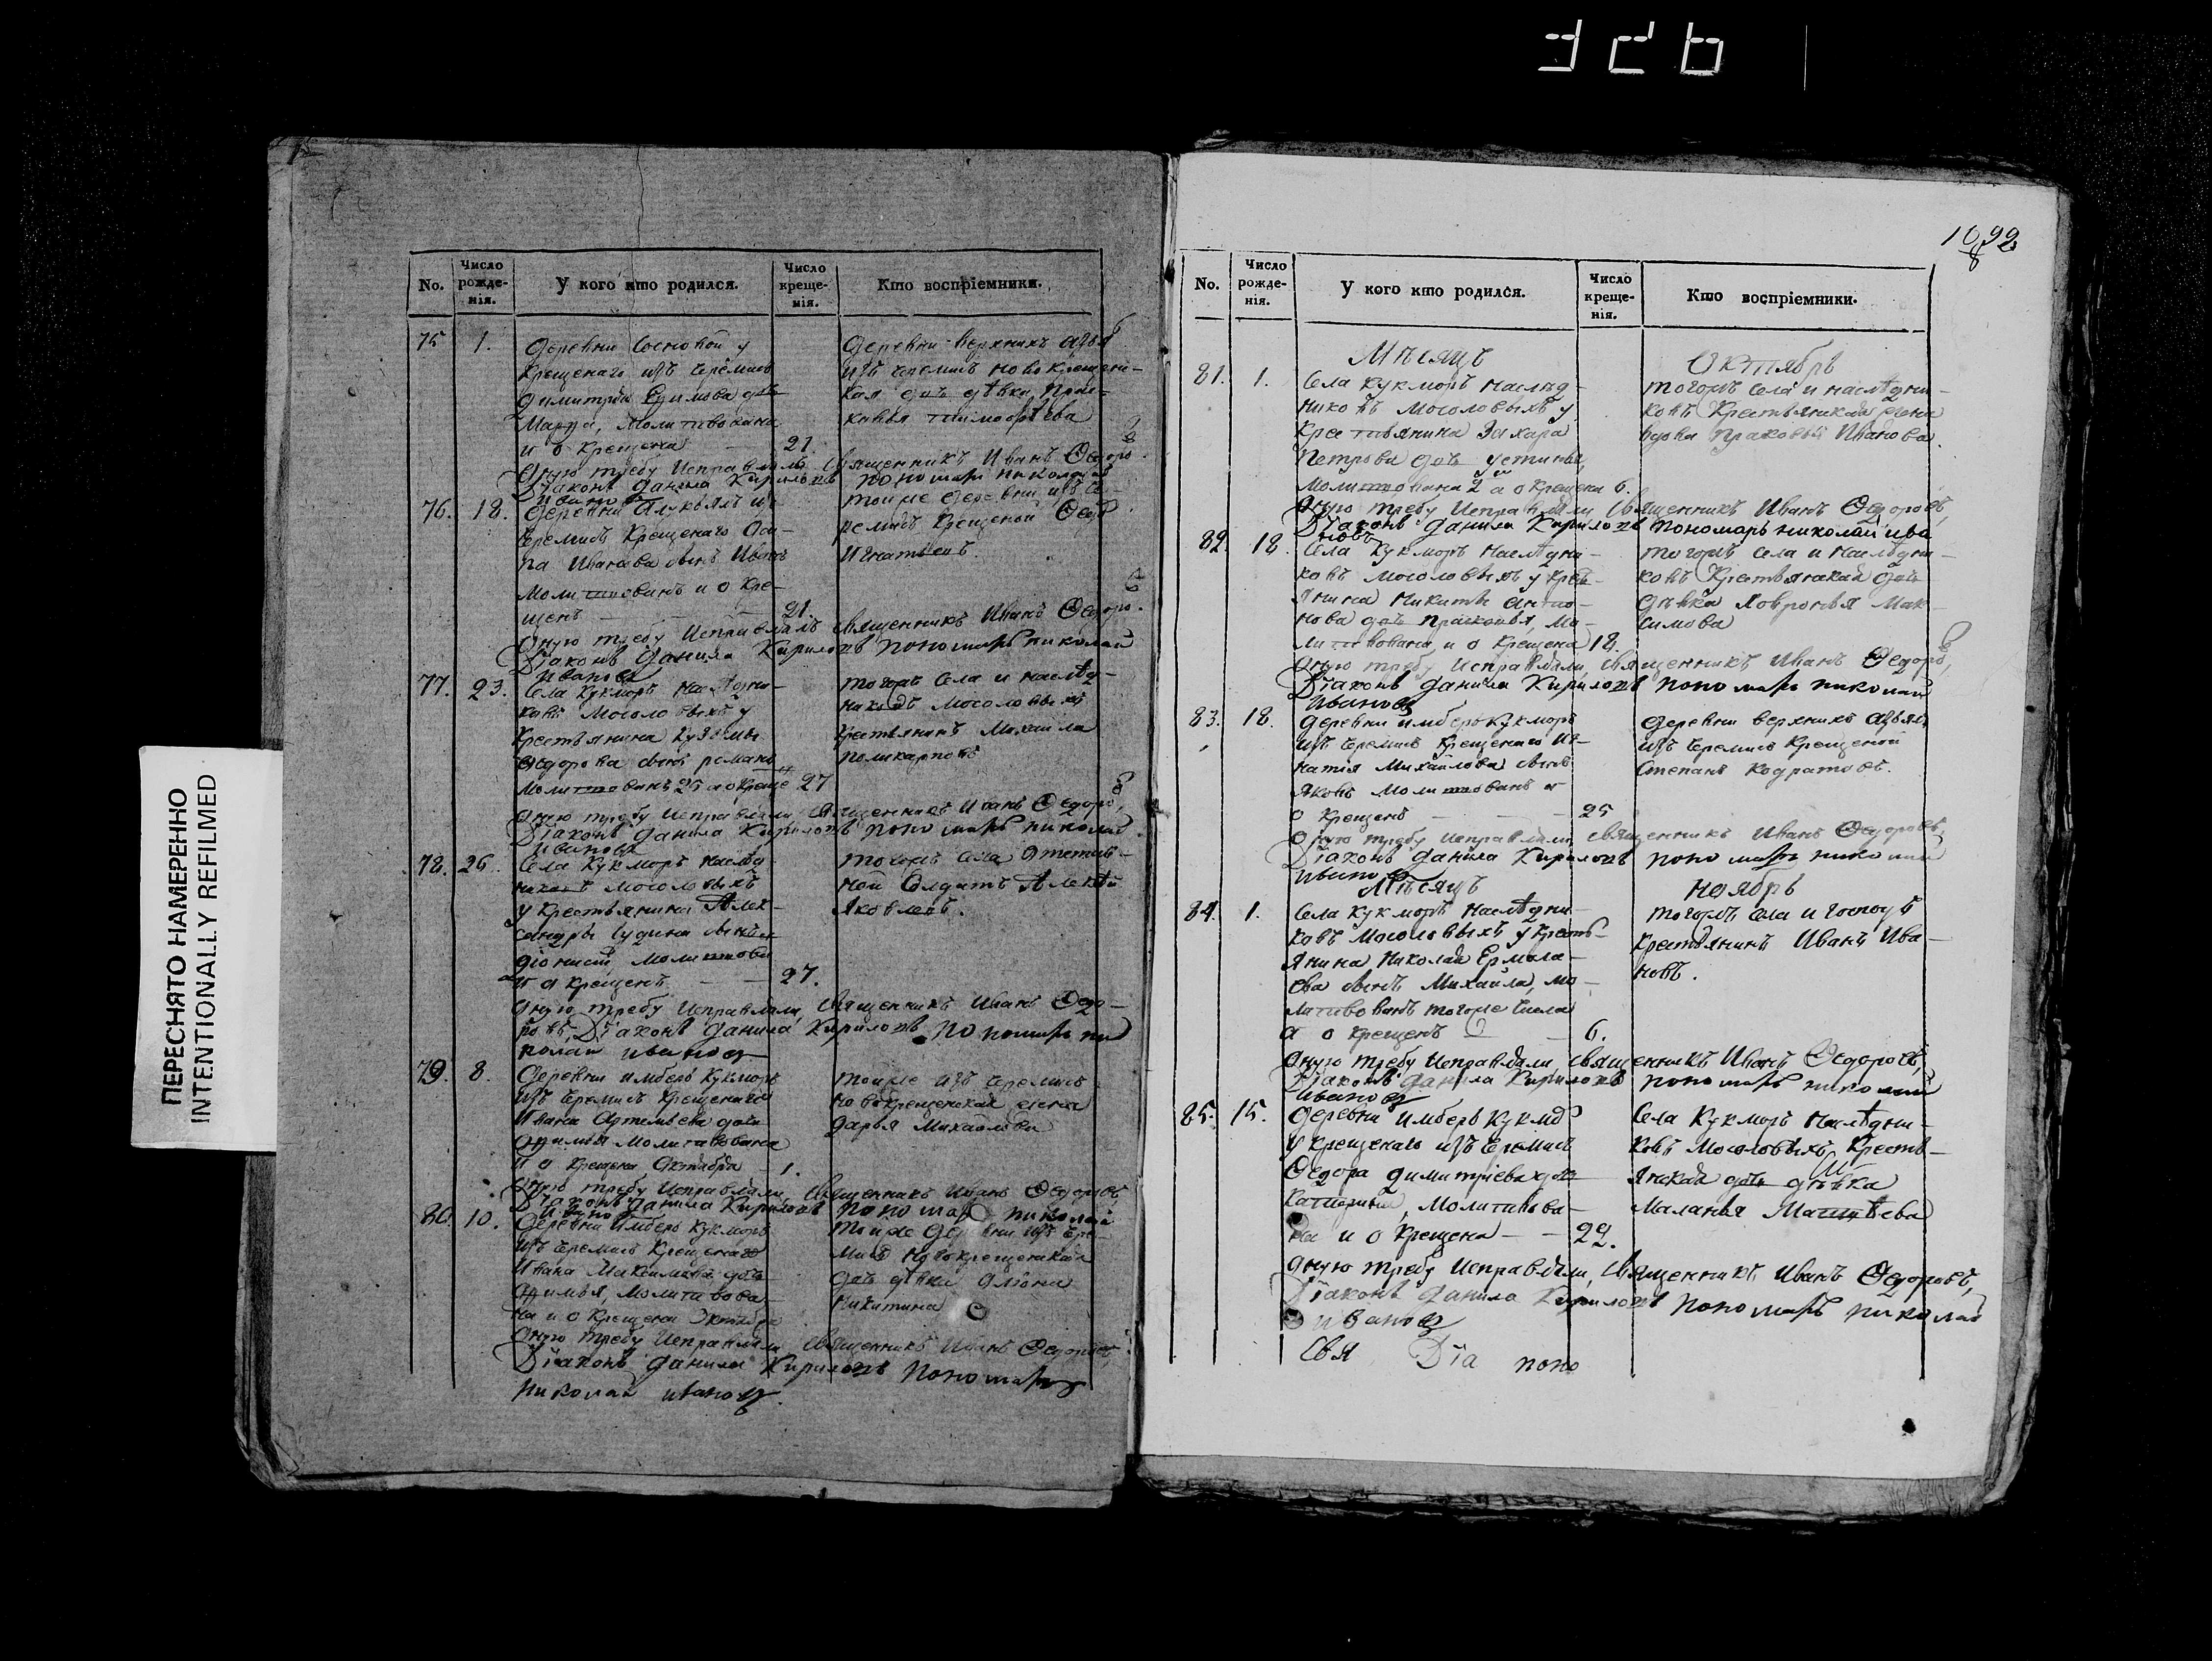 ПЕРЕСНЯТО НАМЕРЕННО
INTENTIONALLY REFILMED
No.
Число рожде-нія.
У кого кто родился.
Число креще-нія.
Кто воспріемники.
75 1.
деревни Сосновой у
крещенаго изъ черемисъ
димитрія Ефимова дочь
Марфа, молитвована
и о крещена 21.
деревни верхнихъ
изъ черемисъ новокрещен-
кая дочь дѣвка Прас-
ковья тимофѣева
Оную требу Исправляли Священникъ Иванъ Ѳедоро
Діаконъ данила Кириловъ пономарь николай
Ивановъ
76. 18.
деревни изъ
черемисъ крещенаго Оси-
па Иванова сынъ Иванъ
молитвованъ и о кре-
щенъ 21.
тойже деревни изъ че-
ремисъ крещеной
Игнатьевъ.
Оную требу Исправляли священникъ Иванъ Ѳедоро.
Діаконъ данила Кириловъ пономарь николай
Ивановъ
77. 23.
Села Кукморъ наслѣдни-
ковъ Мосоловыхъ у
крестьянина кузьмы
Ѳедорова сынъ романъ
молитвованъ 25 а о креще 27
тогожъ села и наслѣд-
никовъ Мосоловыхъ
крестьянинъ Михаила
поликарповъ
Оную требу Исправляли Священникъ Иванъ Ѳедоро,
Діаконъ данила Кириловъ пономарь николай
Ивановъ
78. 26.
Села Кукморъ наслѣд-
никовъ мосоловыхъ
у крестьянина Алек-
сандры сынъ
діонисій молитвова
и о крещенъ 27.
тогожъ села Отстав-
ной Солдатъ Алексѣй
Яковлевъ.
Оную требу Исправляли, Священникъ Иванъ Ѳедо-
ровъ, Діаконъ данила Кириловъ пономарь ни
колай ивановъ
79. 8.
деревни имберь Кукморъ
изъ черемисъ крещенаго
Ивана Артемьева дочь
молитвована
и о крещена Октября 1.
тойже изъ черемисъ
новокрещенская жена
дарья Михайлова
Оную требу Исправляли, Священникъ Иванъ Ѳедоровъ
Діаконъ данила Кириловъ пономарь николай
Ивановъ
80. 10.
деревни имберь Кукморъ
изъ черемисъ крещенаго
Ивана Максимова дочь
молитвова-
на и о крещена Октября
тойже деревни изъ чере-
мисъ новокрещенская
дочь дѣвка
Никитина
Оную требу Исправляли Священникъ Иванъ Ѳедоровъ
Діаконъ данила Кириловъ пономарь
николай ивановъ
No.
Число рожде-нія.
У кого кто родился.
Число креще-нія.
Кто воспріемники.
Мѣсяцъ Октябрь
81. 1.
Села кукморъ наслѣд-
никовъ Мосоловыхъ у
крестьянина Захара
Петрова дочь устинья,
молитвована 2 а о крещена 6.
тогожъ села и наслѣдни-
ковъ Крестьянская жена
вдова прасковья Иванова.
Оную требу Исправляли Священникъ Иванъ Ѳедоровъ,
Діаконъ данила Кириловъ пономарь николай ива
новъ
82. 18.
Села Кукморъ наслѣдни-
ковъ мосоловыхъ у крес-
янина никиты анто-
нова дочь прасковья, мо-
литвована и о крещена 18.
тогожъ села и наслѣдни-
ковъ Крестьянская дочь
дѣвка Ховронья Мак-
симова
Оную требу Исправляли, Священникъ Иванъ Ѳедоро,
Діаконъ данила Кириловъ пономарь николай
Ивановъ
83. 18.
деревни имберькукморъ
изъ черемисъ крещенаго Иг-
натія Михайлова сынъ
Яковъ молитвованъ и
о крещенъ 25
деревни верхнихъ
изъ черемисъ крещеной
Степанъ Кодратовъ.
Оную требу Исправляли, священникъ Иванъ Ѳедоровъ,
Діаконъ данила Кириловъ пономарь николай
Ивановъ
Мѣсяцъ ноябрь
84. 1.
Села кукморъ наслѣдни-
ковъ Мосоловыхъ у кресть-
янина николая Ермола-
ева сынъ Михайла, мо-
литвованъ тогоже числа
а о крещенъ 6.
тогожъ села и господъ
крестьянинъ Иванъ Ива-
новъ.
Оную требу Исправляли священникъ Иванъ Ѳедоровъ,
Діаконъ данила Кириловъ пономарь николай
ивановъ
85. 15.
деревни имберь Кукмо
у крещенаго изъ черемисъ
Ѳедора димитріева дочь
катерина, молитвова-
на и о крещена 22.
Села Кукморъ наслѣдни-
ковъ Мосоловыхъ кресть-
янская дочь дѣвка
Маланья Матвѣева
Оную требу Исправляли, Священникъ Иванъ Ѳедоровъ,
Діаконъ данила Кириловъ пономарь николай
ивановъ
Свя Діа поно